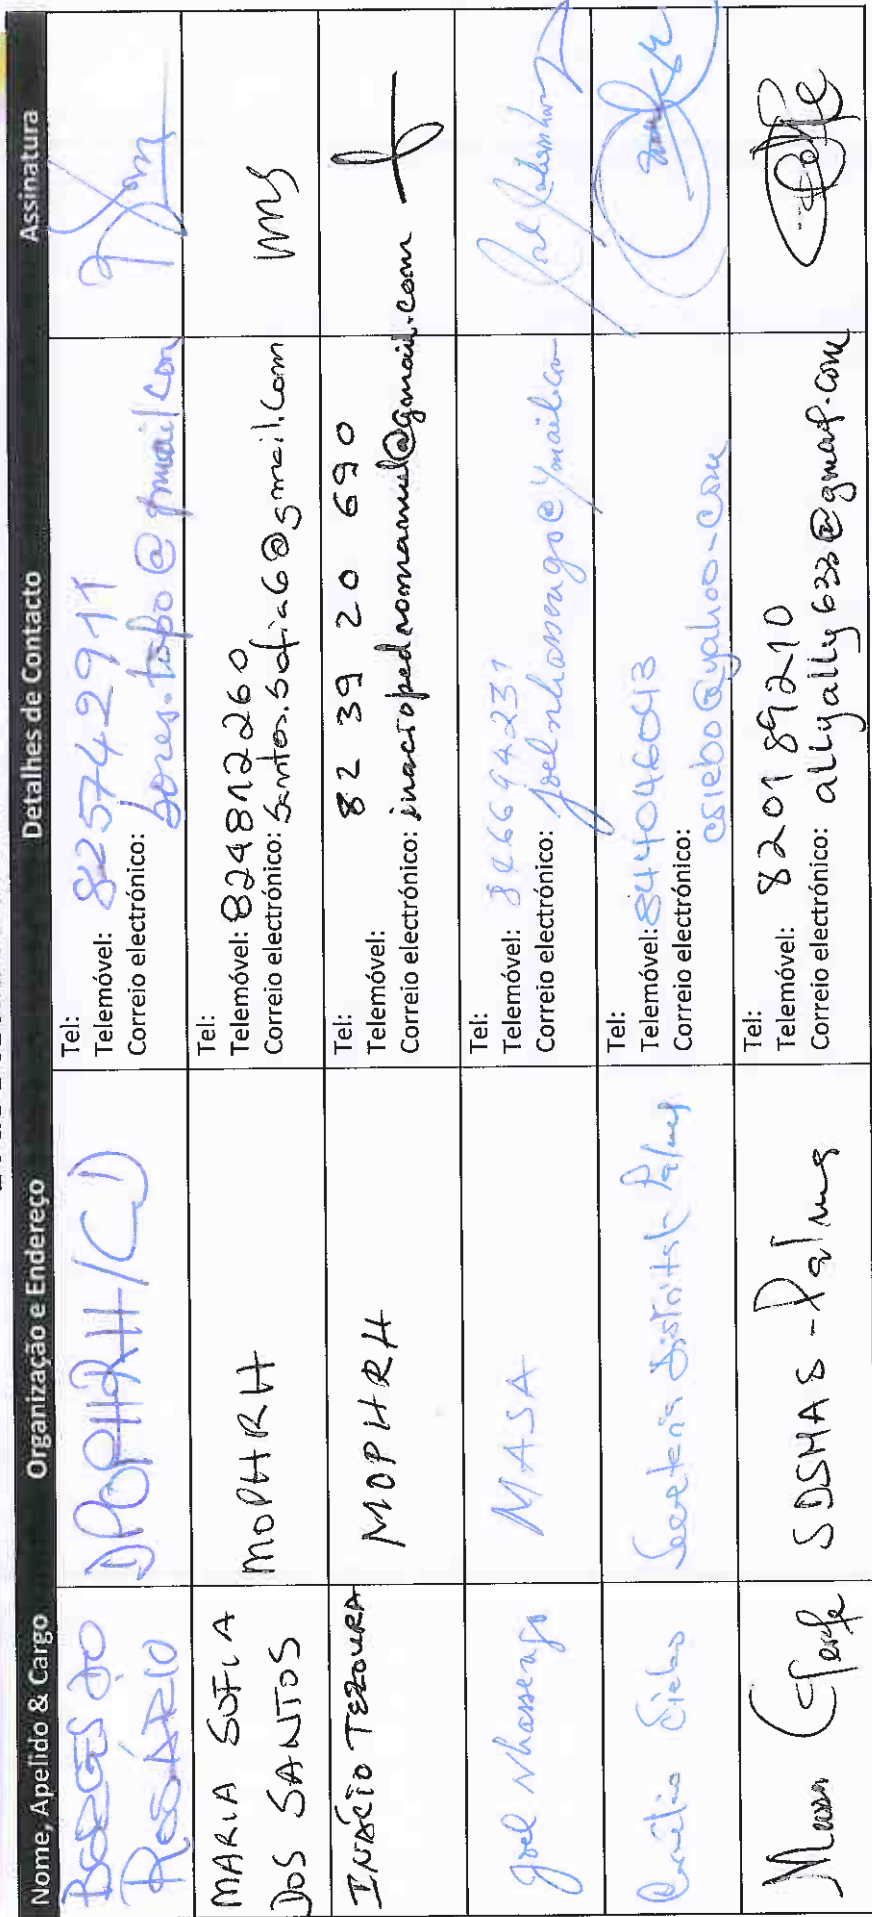 Nome, Apelido & Cargo Organização e Endereço Detalhes de Contacto Assinatura
BORGES DO
ROSÁRIO
DPOPHRH/CD
Tel:
Telemóvel: 825742911
Correio electrónico:
@gmail.com
MARIA SOFIA
DOS SANTOS
MOPHRH
Tel:
Telemóvel: 824812260
Correio electrónico: Santos.Sofia6@gmail.com
INÁCIO TEZOURA
MOPHRH
Tel:
Telemóvel: 82 39 20 690
Correio electrónico: inaciopedromanuel@gmail.com
Joel Nhassengo
MASA
Tel:
Telemóvel: 826694231
Correio electrónico: joelnhassengo@ymail.com
Siebo
Secretaria Distrital Palma
Tel:
Telemóvel: 844046043
Correio electrónico:
csiebo@yahoo.com
SDSMAS - Palma
Tel:
Telemóvel: 820189210
Correio electrónico: allyally633@gmail.com